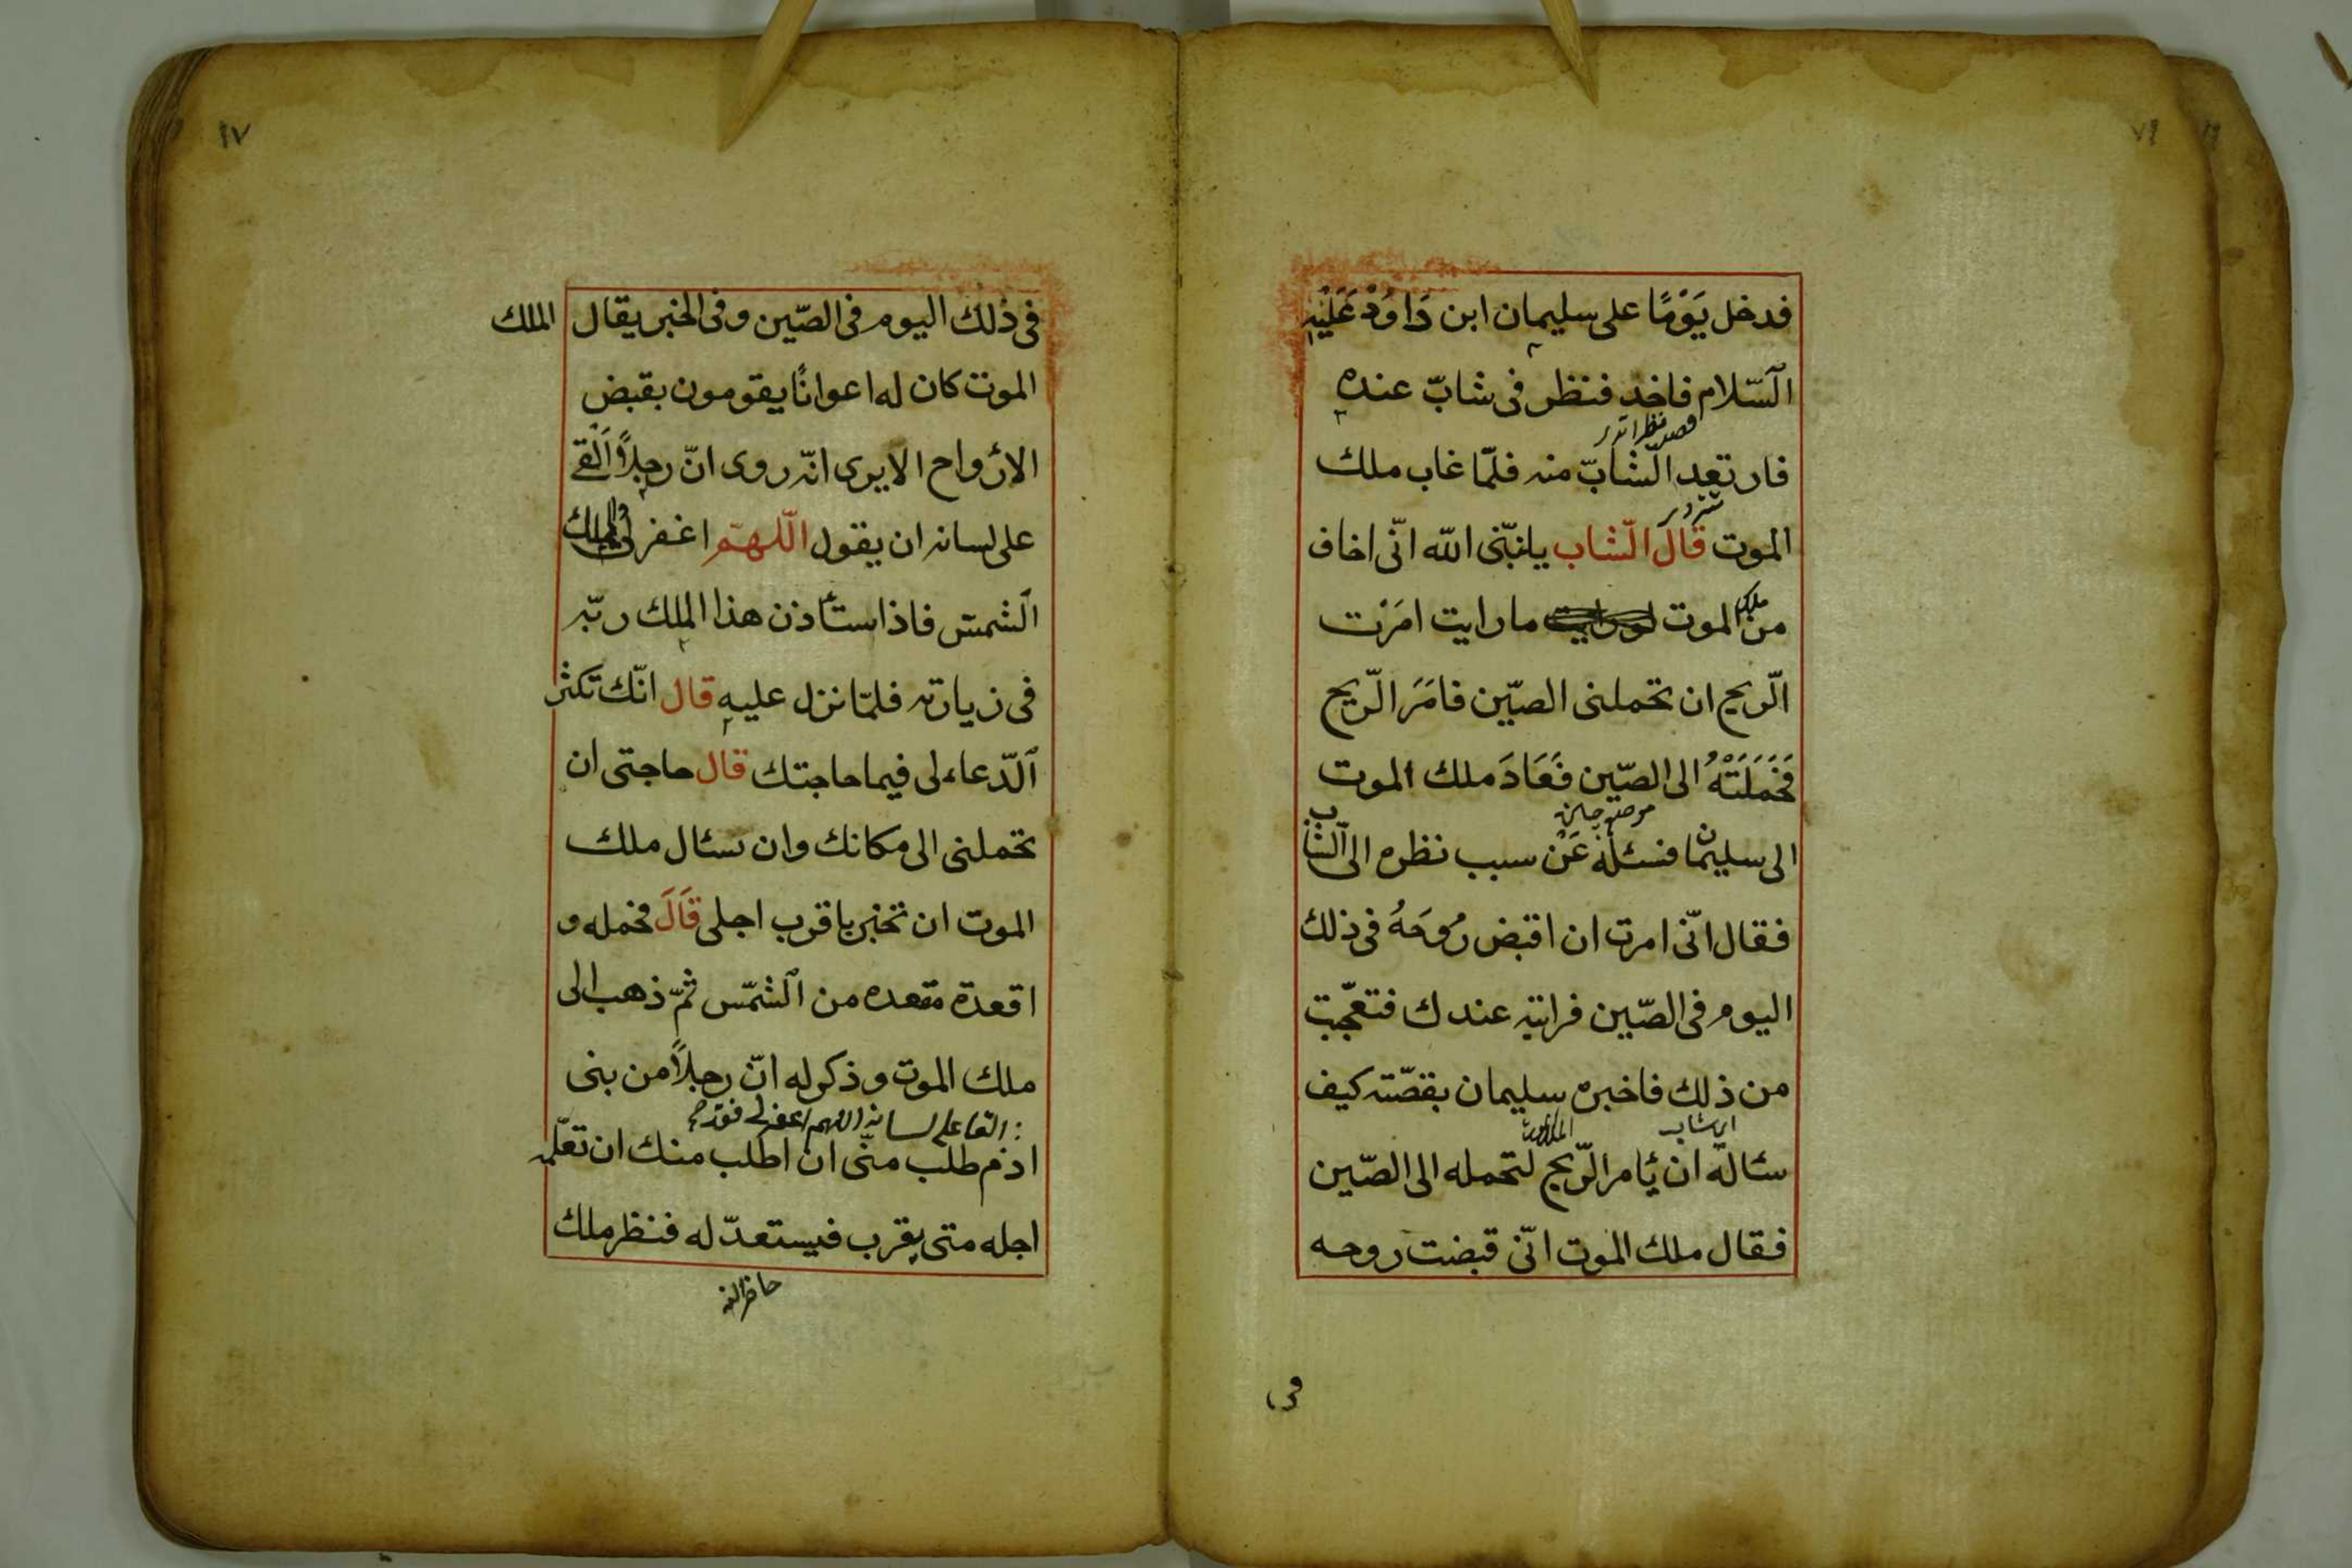 فدخل يَوْمًا على سليمان ابن دَاوُدْ عَلَيْهِ
اَلسّلام فاخد فنظر فى شابّ عنده
فارتعد الّشابّ منه فلمّا غاب ملك
الموت قالَ الّشاب يانبّى الله انّى اخاف
من ملك الموت ما رايت امَرْت
الّريح ان تحملنى الصّين فامَرَ الّريح
فَحَمَلَتْهُ الى الصّين فَعَادَ ملك الموت
الى سليمان فسئله عَنْ سبب نظره الى الشاب
فقال انّى امرت ان اقبض رُوحَهُ فى ذلك
اليوم فى الصّين فرايته عندك فتعجّبت
من ذلك فاخبره سليمان بقصّته كيف
سئاله ان يُامر الّريح لتحمله الى الصّين
فقال ملك الموت انّى قبضت روحه
٩٧
فى ذلك اليوم فى الصّين وفى الخبر يقال الملك
الموت كان له اعوانًا يقومون بقبض
الارْواح الا يرى انّه روى انّ رجلاً اَلْقى
على لسانه ان يقول الّلهمّ اغفر لى ولملك
اَلشمس فاذا استأذن هذا الملك ربّه
فى زيارته فلمّا نزل عليه قال انّك تكثر
اَلدّعاء لى فيما حاجتك قال حاجتى ان
تحملنى الى مكانك وان تسئال ملك
الموت ان تخبر باقرب اجلى قَالَ فحمله و
اقعدة مقعده من اَلشمّس ثمّ ذهب الى
ملك الموت وذكر له انّ رجلاً من بنى
القا على لسانه اللهم اغفر لى
ادم طلب منّى ان اطلب منك ان تعلّمه
اجله متى يقرب فيستعدّ له فنظر ملك